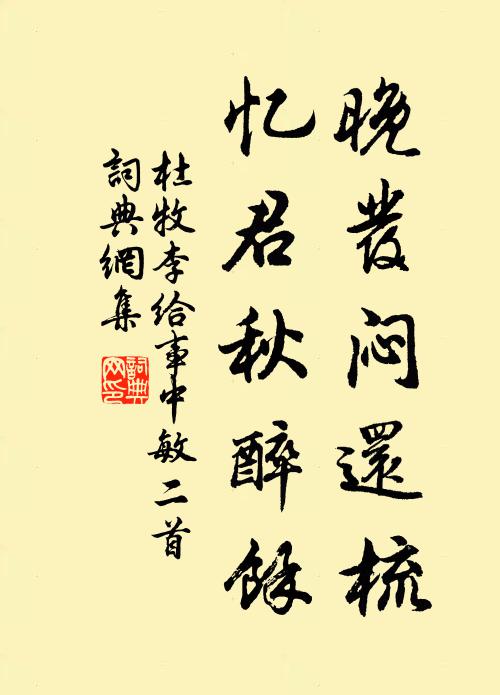 晚發闷還梳
忆君秋醉餘
杜牧李给事中敏二首
詞典網集
詞典网印